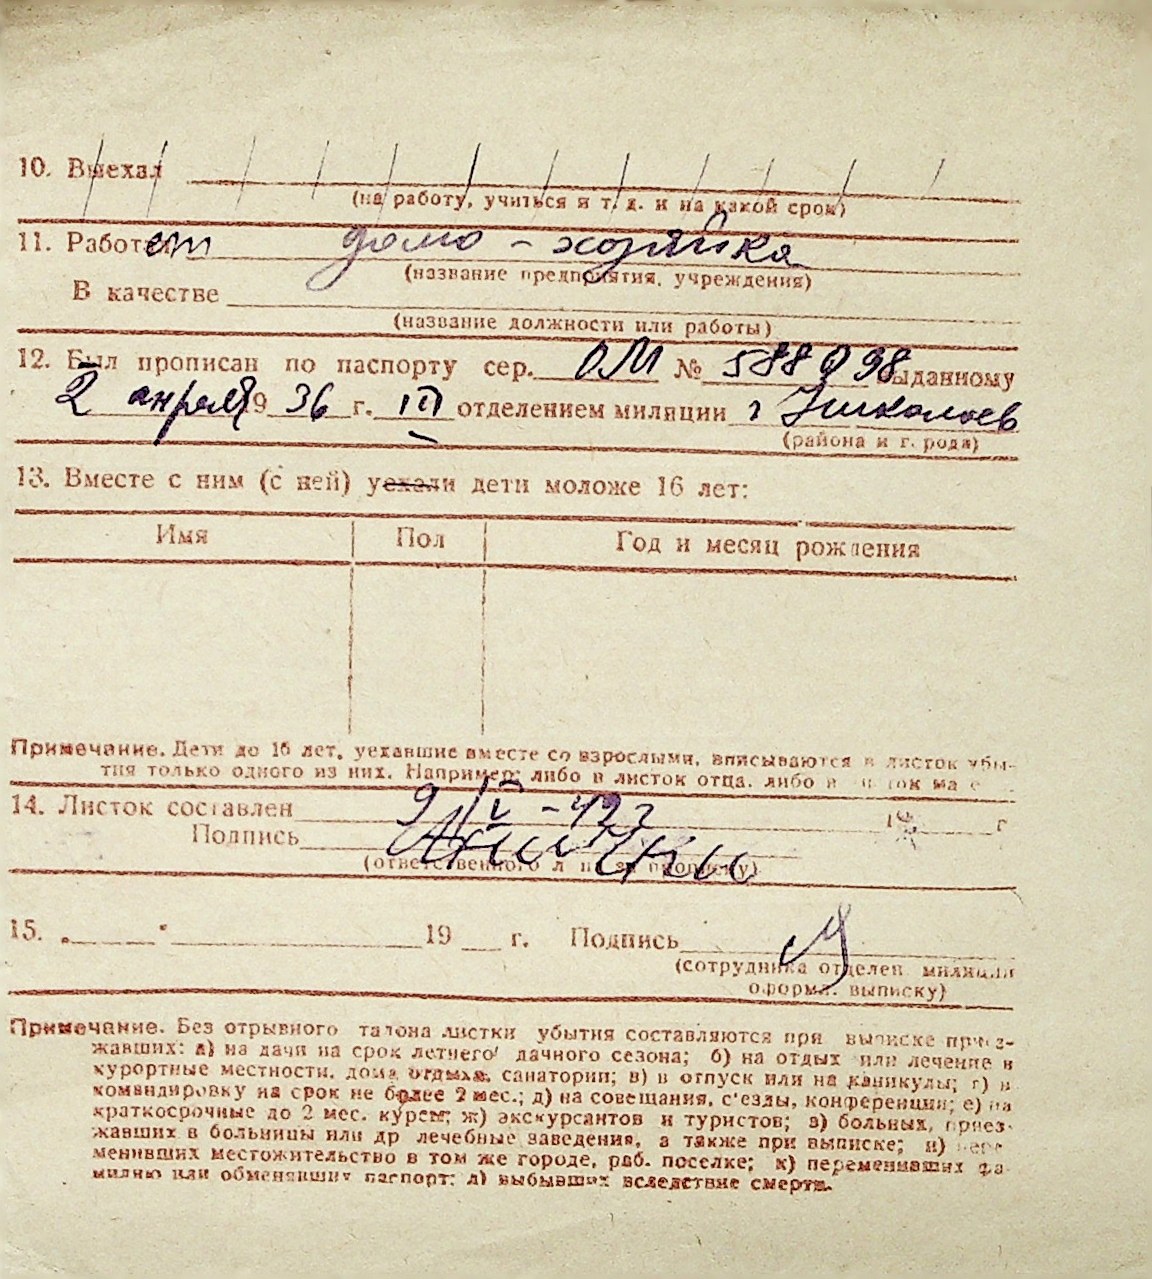 10. Выехал
(на работу, учиться и т. д. и на какой срок)
11. Работает домо-хозяйка
(название предприятия, учреждения)
В качестве
(название должности или работы)
12. Был прописан по паспорту сер. ОМ № 588098 выданному
2 апреля 1936 г. III отделением милиции г Николаев
(района и г. рода)
13. Вместе с ним (с ней) уехали дети моложе 16 лет:
Имя Пол Год и месяц рождения
Примечание. Дети до 16 лет, уехавшие вместе со взрослыми, вписываются в листок убы-
тия только одного из них. Например: либо в листок отца, либо в листок ма
14. Листок составлен 9/IV-42 г 19 г
Подпись
(ответственного л за прописку)
15. „ " 19 г. Подпись
(сотрудника отделен. милиции
оформ. выписку)
Примечание. Без отрывного талона листки убытия составляются при выписке приез-
жавших: а) на дачи на срок летнего дачного сезона; б) на отдых или лечение в
курортные местности, дома отдыха, санатории; в) в отпуск или на каникулы; г) в
командировку на срок не более 2 мес.; д) на совещания, с'езды, конференции; е) на
краткосрочные до 2 мес. курсы; ж) экскурсантов и туристов; з) больных, приез-
жавших в больницы или др лечебные заведения, а также при выписке; и) пере-
менивших местожительство в том же городе, раб. поселке; к) переменивших фа-
милию или обменявших паспорт; л) выбывших вследствие смерти.